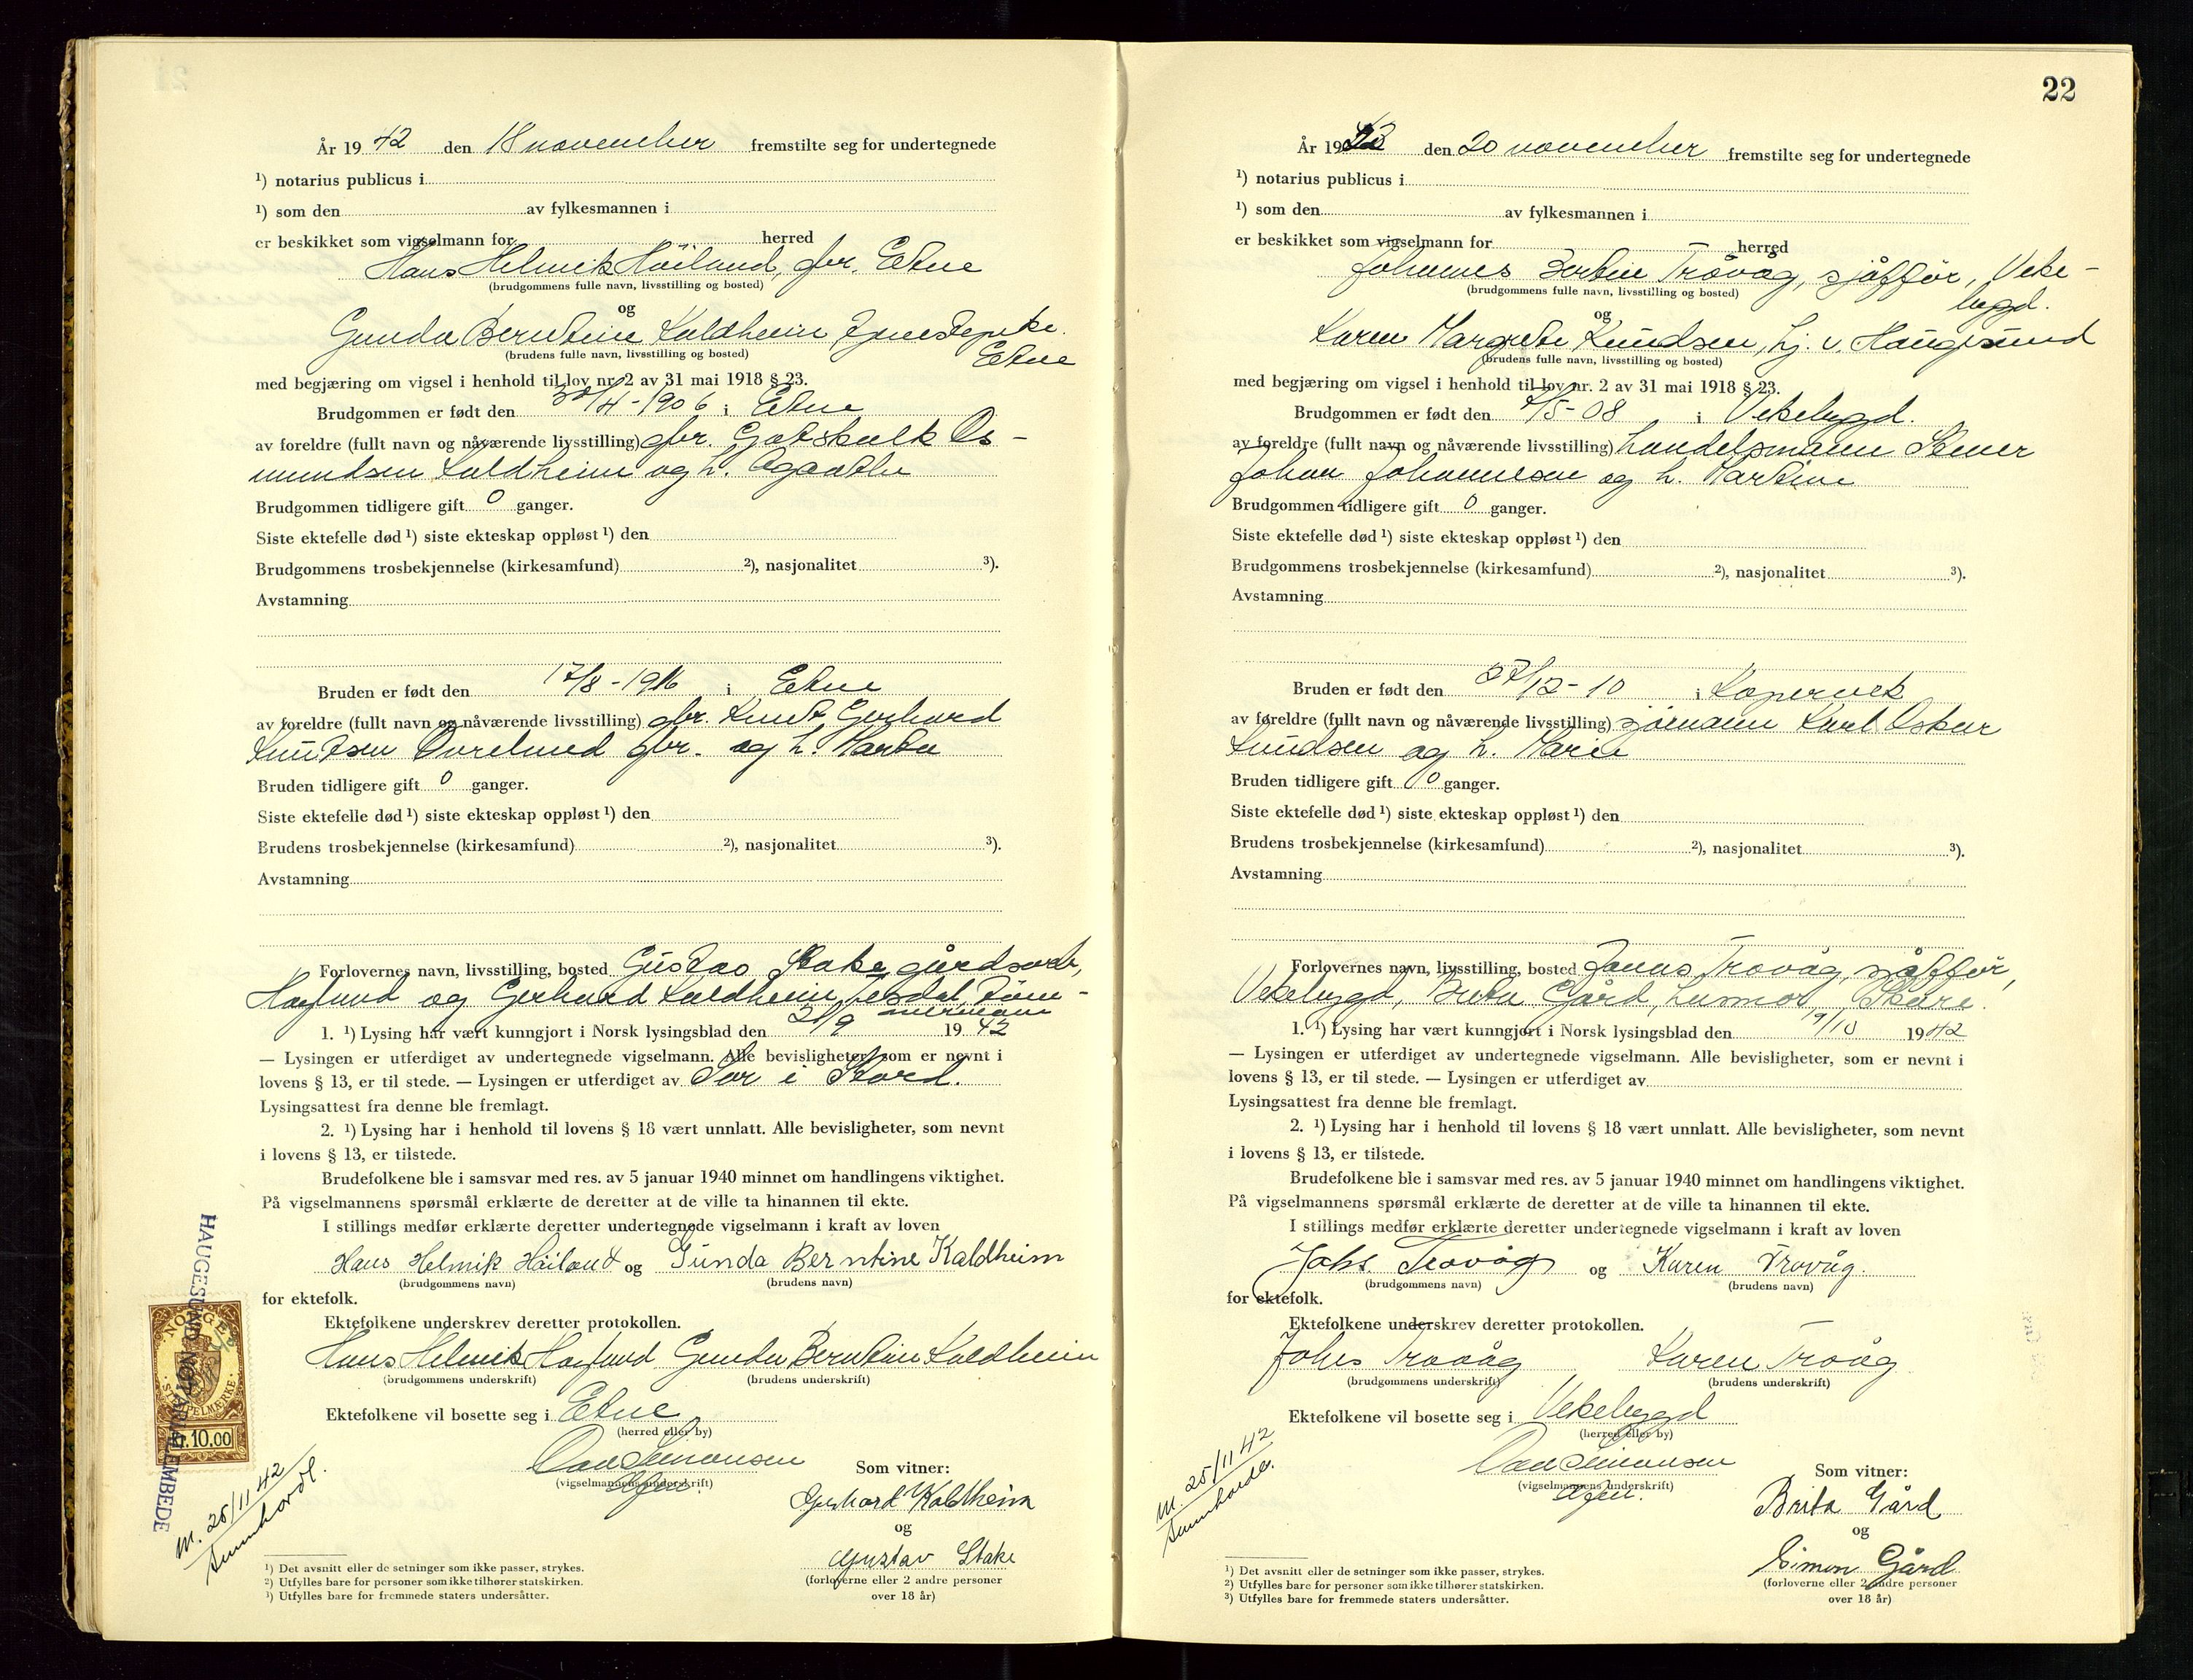 År 1942 den 18 november fremstilte seg for undertegnede
¹) notarius publicus i
¹) som den av fylkesmannen i
er beskikket som vigselmann for herred
Hans Helmik Höiland, gbr. Etne
(brudgommens fulle navn, livsstilling og bosted)
og
Gunda Berntine Kaldheim, tjenestepike.
Etne
(brudens fulle navn, livsstilling og bosted)
med begjæring om vigsel i henhold til lov nr. 2 av 31 mai 1918 § 23.
Brudgommen er født den 30/4-1906 i Etne
av foreldre (fullt navn og nåværende livsstilling) gbr. Gotskalk As-
mundsen Kaldheim og h. Agaathe
Brudgommen tidligere gift 0 ganger.
Siste ektefelle død ¹) siste ekteskap oppløst ¹) den
Brudgommens trosbekjennelse (kirkesamfund) ²), nasjonalitet ³).
Avstamning
Bruden er født den 17/8-1916 i Etne
av foreldre (fullt navn og nåværende livsstilling) gbr. Knut Gerhard
Knutsen gbr. og h. Marta
Bruden tidligere gift 0 ganger.
Siste ektefelle død ¹) siste ekteskap oppløst ¹) den
Brudens trosbekjennelse (kirkesamfund) ²), nasjonalitet ³).
Avstamning
Forlovernes navn, livsstilling, bosted Gustav Stake, gårdsarb,
Høyland og Gerhard Kaldheim, Tesdal, töm-
mermann
1. ¹) Lysing har vært kunngjort i Norsk lysingsblad den 21/9 1942
— Lysingen er utferdiget av undertegnede vigselmann. Alle bevisligheter, som er nevnt i
lovens § 13, er til stede. — Lysingen er utferdiget av Sor i Stord.
Lysingsattest fra denne ble fremlagt.
2. ¹) Lysing har i henhold til lovens § 18 vært unnlatt. Alle bevisligheter, som nevnt
i lovens § 13, er tilstede.
Brudefolkene ble i samsvar med res. av 5 januar 1940 minnet om handlingens viktighet.
På vigselmannens spørsmål erklærte de deretter at de ville ta hinannen til ekte.
I stillings medfør erklærte deretter undertegnede vigselmann i kraft av loven
Hans Helmik Höiland og Gunda Berntine Kaldheim
(brudgommens navn) (brudens navn)
for ektefolk.
Ektefolkene underskrev deretter protokollen.
Hans Helmik Høyland Gunda Berntine Kaldheim
(brudgommens underskrift) (brudens underskrift)
Ektefolkene vil bosette seg i Etne
(herred eller by)
Simonsen
(vigselmannens underskrift)
Som vitner:
Gerhard Kaldheim
og
Gustav Stake
(forloverne eller 2 andre personer
over 18 år)
HAUGESUND NOTARIALEMBEDE
NORGE
STEMPELMERKE
Kr. 10.00
M. 25/11 42
Sunnhordl.
¹) Det avsnitt eller de setninger som ikke passer, strykes.
²) Utfylles bare for personer som ikke tilhører statskirken.
³) Utfylles bare for fremmede staters undersåtter.
22
År 1942 den 20 november fremstilte seg for undertegnede
¹) notarius publicus i
¹) som den av fylkesmannen i
er beskikket som vigselmann for herred
Johannes Bertin Trovåg, sjåffør, Vike-
bygd.
(brudgommens fulle navn, livsstilling og bosted)
og
Karen Margrete Knudsen, hj. v. Haugesund
(brudens fulle navn, livsstilling og bosted)
med begjæring om vigsel i henhold til lov nr. 2 av 31 mai 1918 § 23.
Brudgommen er født den 7/5-08 i Vikebygd.
av foreldre (fullt navn og nåværende livsstilling) handelsmann Stener
Johan Johannesen og h. Martine
Brudgommen tidligere gift 0 ganger.
Siste ektefelle død ¹) siste ekteskap oppløst ¹) den
Brudgommens trosbekjennelse (kirkesamfund) ²), nasjonalitet ³).
Avstamning
Bruden er født den 27/12-10 i Kopervik
av foreldre (fullt navn og nåværende livsstilling) sjømann Karl Oskar
Knudsen og h. Marie
Bruden tidligere gift 0 ganger.
Siste ektefelle død ¹) siste ekteskap oppløst ¹) den
Brudens trosbekjennelse (kirkesamfund) ²), nasjonalitet ³).
Avstamning
Forlovernes navn, livsstilling, bosted Jonas Trovåg, sjåffør,
Vikebygd, Brita Gård, husmor, Skåre.
1. ¹) Lysing har vært kunngjort i Norsk lysingsblad den 19/10 1942
— Lysingen er utferdiget av undertegnede vigselmann. Alle bevisligheter, som er nevnt i
lovens § 13, er til stede. — Lysingen er utferdiget av
Lysingsattest fra denne ble fremlagt.
2. ¹) Lysing har i henhold til lovens § 18 vært unnlatt. Alle bevisligheter, som nevnt
i lovens § 13, er tilstede.
Brudefolkene ble i samsvar med res. av 5 januar 1940 minnet om handlingens viktighet.
På vigselmannens spørsmål erklærte de deretter at de ville ta hinannen til ekte.
I stillings medfør erklærte deretter undertegnede vigselmann i kraft av loven
Johs. Trovåg og Karen Trovåg.
(brudgommens navn) (brudens navn)
for ektefolk.
Ektefolkene underskrev deretter protokollen.
Johs Trovåg Karen Trovåg
(brudgommens underskrift) (brudens underskrift)
Ektefolkene vil bosette seg i Vikebygd
(herred eller by)
Simonsen
(vigselmannens underskrift)
Som vitner:
Brita Gård
og
Simon Gård
(forloverne eller 2 andre personer
over 18 år)
M. 25/11 42
Sunnhordl.
¹) Det avsnitt eller de setninger som ikke passer, strykes.
²) Utfylles bare for personer som ikke tilhører statskirken.
³) Utfylles bare for fremmede staters undersåtter.